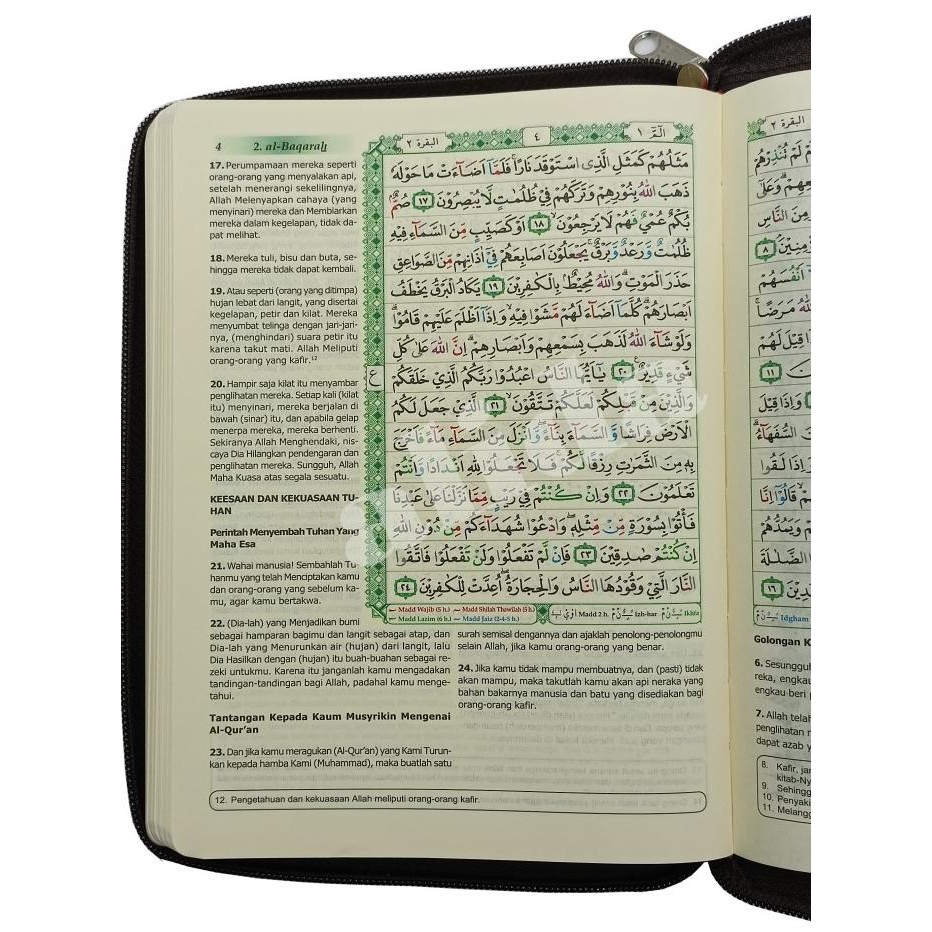 4 2. al-Baqarah
البقرة ٢ ٤ الٓمّٓ ١
17. Perumpamaan mereka seperti
orang-orang yang menyalakan api,
setelah menerangi sekelilingnya,
Allah Melenyapkan cahaya (yang
menyinari) mereka dan Membiarkan
mereka dalam kegelapan, tidak da-
pat melihat.
18. Mereka tuli, bisu dan buta, se-
hingga mereka tidak dapat kembali.
19. Atau seperti (orang yang ditimpa)
hujan lebat dari langit, yang disertai
kegelapan, petir dan kilat. Mereka
menyumbat telinga dengan jari-jari-
nya, (menghindari) suara petir itu
karena takut mati. Allah Meliputi
orang-orang yang kafir.¹²
20. Hampir saja kilat itu menyambar
penglihatan mereka. Setiap kali (kilat
itu) menyinari, mereka berjalan di
bawah (sinar) itu, dan apabila gelap
menerpa mereka, mereka berhenti.
Sekiranya Allah Menghendaki, nis-
caya Dia Hilangkan pendengaran dan
penglihatan mereka. Sungguh, Allah
Maha Kuasa atas segala sesuatu.
KEESAAN DAN KEKUASAAN TU-
HAN
Perintah Menyembah Tuhan Yang
Maha Esa
21. Wahai manusia! Sembahlah Tu-
hanmu yang telah Menciptakan kamu
dan orang-orang yang sebelum ka-
mu, agar kamu bertakwa.
22. (Dia-lah) yang Menjadikan bumi
sebagai hamparan bagimu dan langit sebagai atap, dan
Dia-lah yang Menurunkan air (hujan) dari langit, lalu
Dia Hasilkan dengan (hujan) itu buah-buahan sebagai re-
zeki untukmu. Karena itu janganlah kamu mengadakan
tandingan-tandingan bagi Allah, padahal kamu menge-
tahui.
Tantangan Kepada Kaum Musyrikin Mengenai
Al-Qur'an
23. Dan jika kamu meragukan (Al-Qur'an) yang Kami Turun-
kan kepada hamba Kami (Muhammad), maka buatlah satu
مَثَلُهُمْ كَمَثَلِ الَّذِى اسْتَوْقَدَ نَارًاۚ فَلَمَّآ اَضَاۤءَتْ مَا حَوْلَهٗ
ذَهَبَ اللّٰهُ بِنُوْرِهِمْ وَتَرَكَهُمْ فِيْ ظُلُمٰتٍ لَّا يُبْصِرُوْنَ ١٧ صُمٌّۢ
بُكْمٌ عُمْيٌ فَهُمْ لَا يَرْجِعُوْنَۙ ١٨ اَوْ كَصَيِّبٍ مِّنَ السَّمَاۤءِ فِيْهِ
ظُلُمٰتٌ وَّرَعْدٌ وَّبَرْقٌۚ يَجْعَلُوْنَ اَصَابِعَهُمْ فِيْٓ اٰذَانِهِمْ مِّنَ الصَّوَاعِقِ
حَذَرَ الْمَوْتِۗ وَاللّٰهُ مُحِيْطٌۢ بِالْكٰفِرِيْنَ ١٩ يَكَادُ الْبَرْقُ يَخْطَفُ
اَبْصَارَهُمْۗ كُلَّمَآ اَضَاۤءَ لَهُمْ مَّشَوْا فِيْهِۙ وَاِذَآ اَظْلَمَ عَلَيْهِمْ قَامُوْاۗ
وَلَوْ شَاۤءَ اللّٰهُ لَذَهَبَ بِسَمْعِهِمْ وَاَبْصَارِهِمْۗ اِنَّ اللّٰهَ عَلٰى كُلِّ
شَيْءٍ قَدِيْرٌ ٢٠ يٰٓاَيُّهَا النَّاسُ اعْبُدُوْا رَبَّكُمُ الَّذِيْ خَلَقَكُمْ
وَالَّذِيْنَ مِنْ قَبْلِكُمْ لَعَلَّكُمْ تَتَّقُوْنَۙ ٢١ الَّذِيْ جَعَلَ لَكُمُ
الْاَرْضَ فِرَاشًا وَّالسَّمَاۤءَ بِنَاۤءًۖ وَّاَنْزَلَ مِنَ السَّمَاۤءِ مَاۤءً فَاَخْرَجَ
بِهٖ مِنَ الثَّمَرٰتِ رِزْقًا لَّكُمْۚ فَلَا تَجْعَلُوْا لِلّٰهِ اَنْدَادًا وَّاَنْتُمْ
تَعْلَمُوْنَ ٢٢ وَاِنْ كُنْتُمْ فِيْ رَيْبٍ مِّمَّا نَزَّلْنَا عَلٰى عَبْدِنَا
فَأْتُوْا بِسُوْرَةٍ مِّنْ مِّثْلِهٖۖ وَادْعُوْا شُهَدَاۤءَكُمْ مِّنْ دُوْنِ اللّٰهِ
اِنْ كُنْتُمْ صٰدِقِيْنَ ٢٣ فَاِنْ لَّمْ تَفْعَلُوْا وَلَنْ تَفْعَلُوْا فَاتَّقُوا
النَّارَ الَّتِيْ وَقُوْدُهَا النَّاسُ وَالْحِجَارَةُۖ اُعِدَّتْ لِلْكٰفِرِيْنَ ٢٤
ع
Madd Wajib (5 h.) Madd Shilah Thawilah (5 h.)
Madd Lazim (6 h.) Madd Jaiz (2-4-5 h.)
Madd 2 h. Izh-har
surah semisal dengannya dan ajaklah penolong-penolongmu
selain Allah, jika kamu orang-orang yang benar.
24. Jika kamu tidak mampu membuatnya, dan (pasti) tidak
akan mampu, maka takutlah kamu akan api neraka yang
bahan bakarnya manusia dan batu yang disediakan bagi
orang-orang kafir.
12. Pengetahuan dan kekuasaan Allah meliputi orang-orang kafir.
البقرة ٢
مِنَ النَّاسِ
٨
اَنْفُسَهُمْ
١١
وَاِذَا قِيْلَ
السُّفَهَاۤءُ
قَالُوْٓا اِنَّا
الضَّلٰلَةَ
١٦
Idgham
Golongan K
6. Sesungguh
reka, engkau
engkau beri p
7. Allah telah
penglihatan m
dapat azab y
8. Kafir, jar
kitab-Ny
9. Sehingg
10. Penyaki
11. Melangg